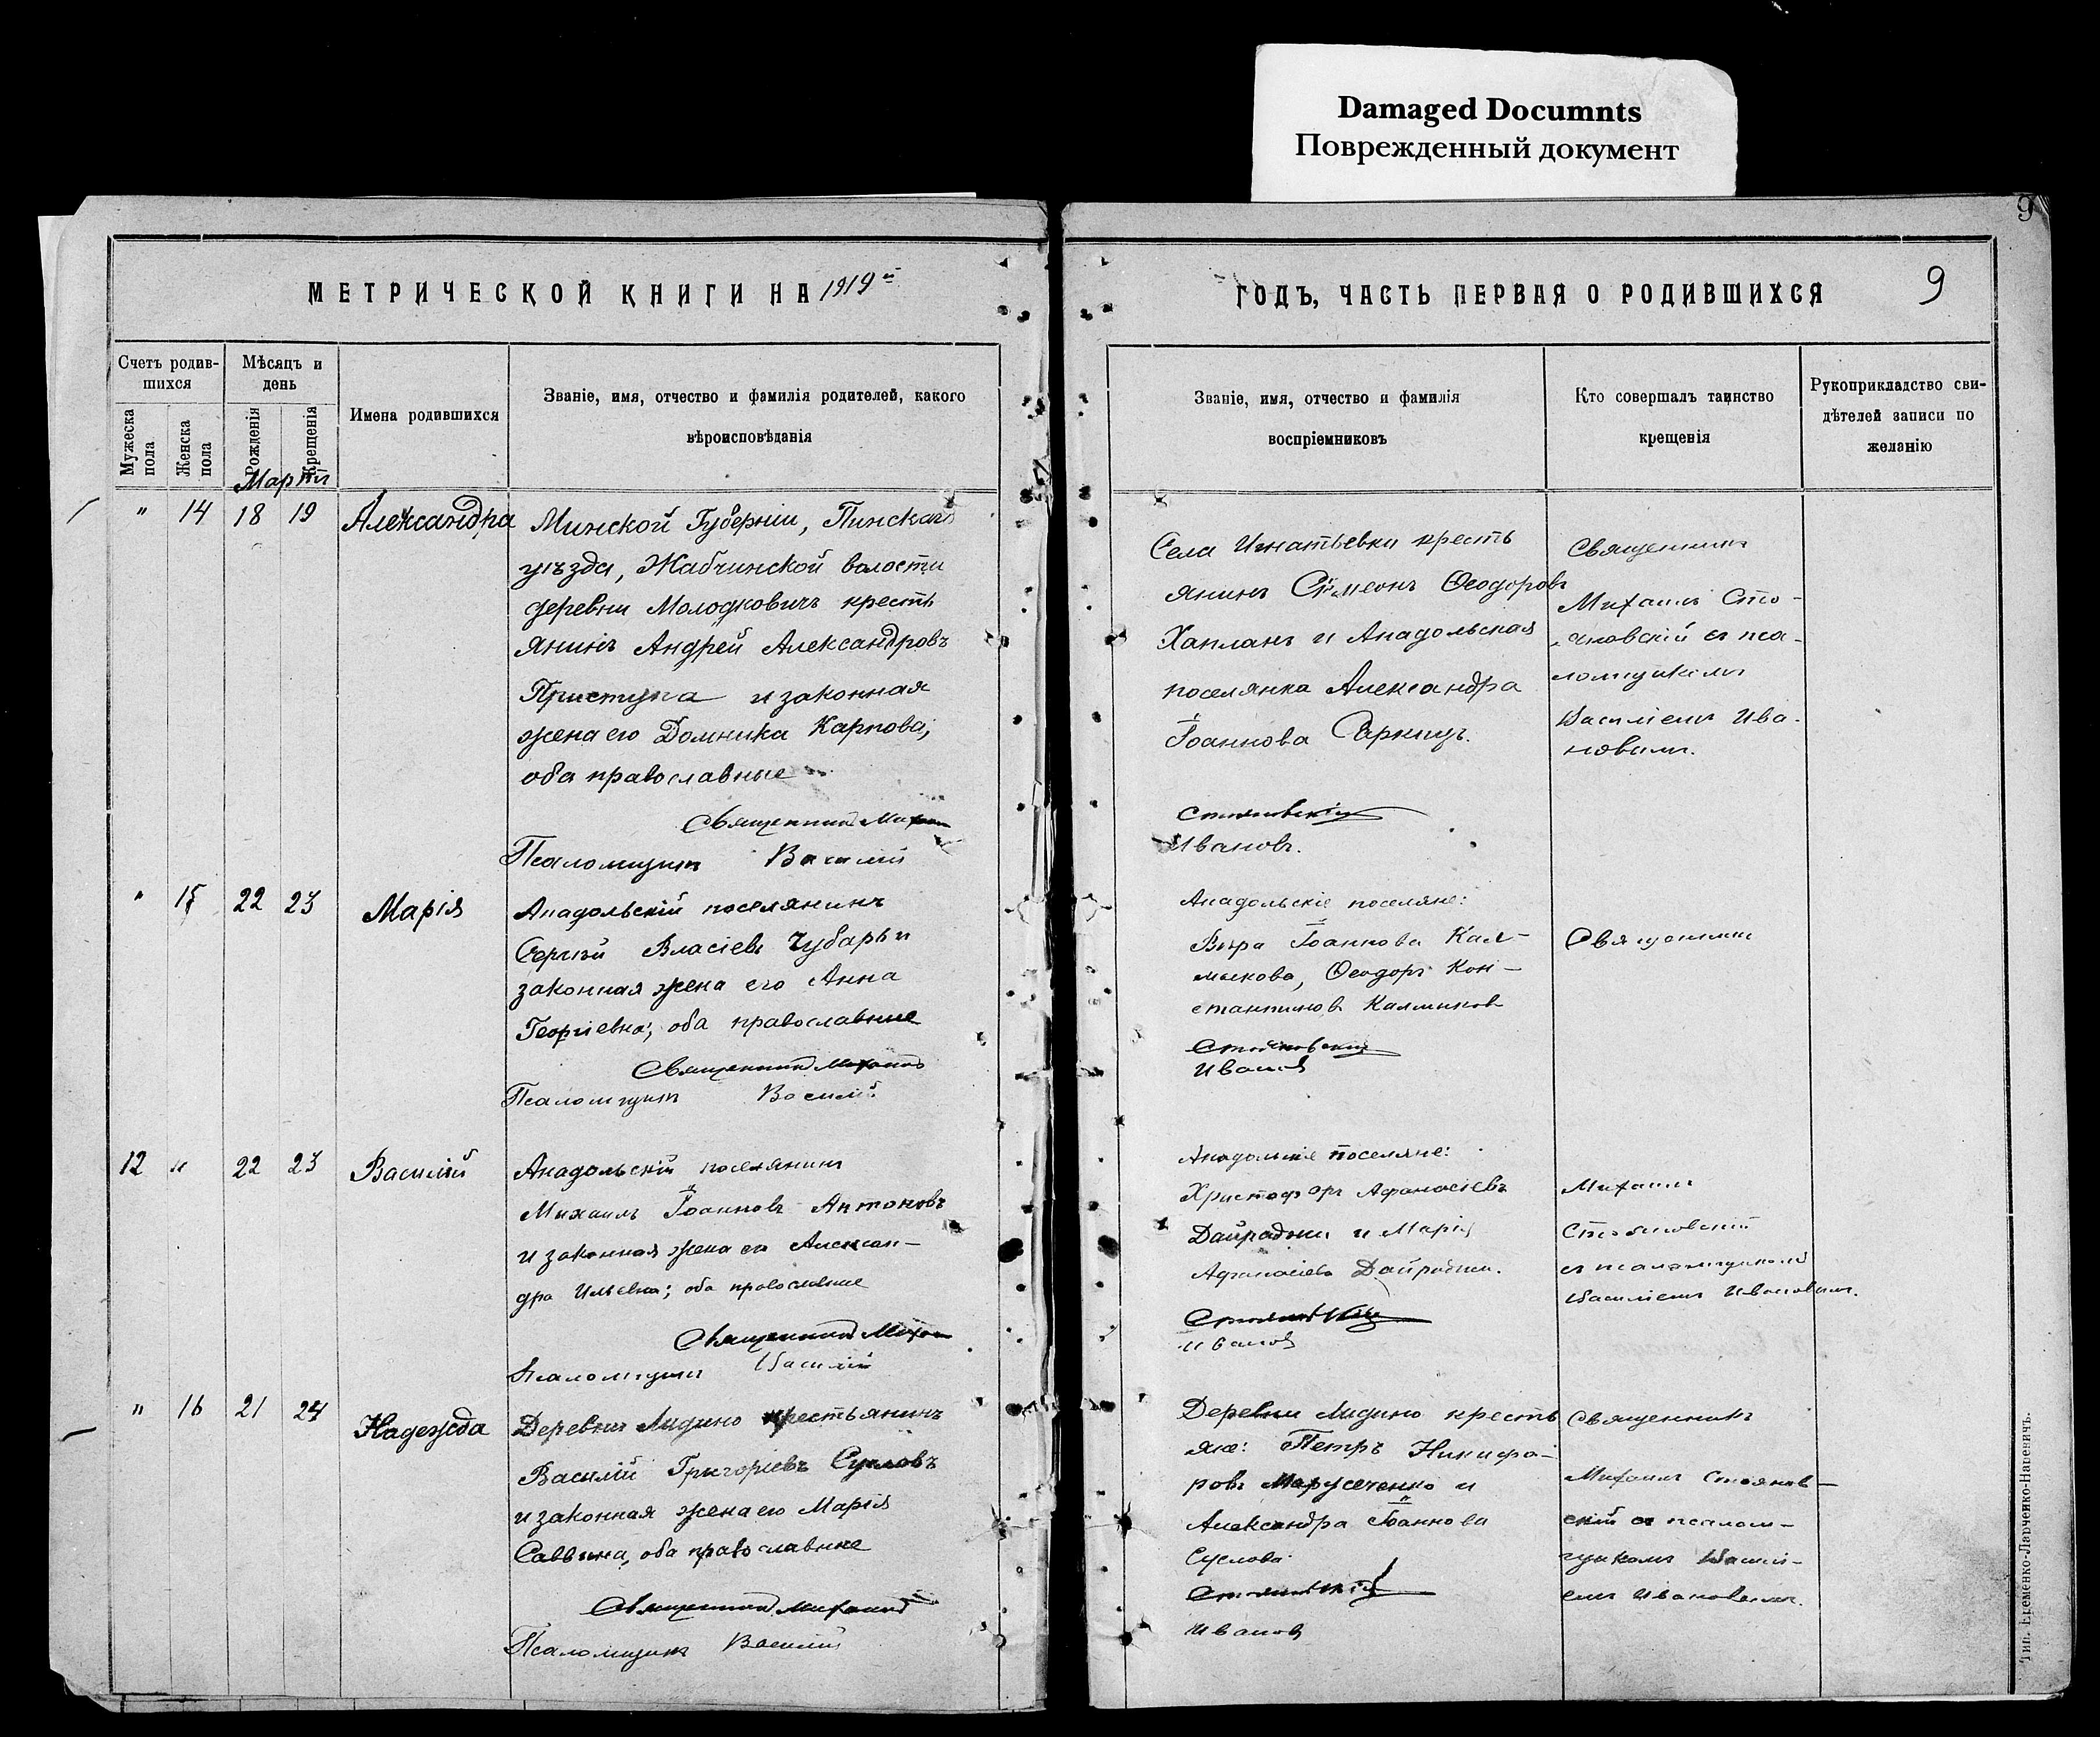 Damaged Documnts
Поврежденный документ
9
МЕТРИЧЕСКОЙ КНИГИ НА 1919й
Счетъ родив-
шихся
Мужеска
пола
Женска
пола
Мѣсяцъ и
день
Рожденія
Крещенія
Имена родившихся
Званіе, имя, отчество и фамилія родителей, какого
вѣроисповѣданія
Мартъ
" 14 18 19 Александра
Минской Губерніи, Пинскаго
уѣзда, Жабчинской волости
деревни Молодковичъ кресть
янинъ Андрей Александровъ
Приступа и законная
жена его Домника Карпова;
оба православные
Священникъ Михаилъ
Псаломщикъ Василій
" 15 22 23 Марія
Анадольскій поселянинъ
Сергѣй Власіевъ Чубарь и
законная жена его Анна
Георгіевна; оба православные
Священникъ Михаилъ
Псаломщикъ Василій
12 " 22 23 Василій
Анадольскій поселянинъ
Михаилъ Іоанновъ Антоновъ
и законная жена его Алексан-
дра Ильевна; оба православные
Священникъ Михаилъ
Псаломщикъ Василій
" 16 21 24 Надежда
Деревни Лидино крестьянинъ
Василій Григоріевъ Сусловъ
и законная жена его Марія
Саввина, оба православные
Священникъ Михаилъ
Псаломщикъ Василій
ГОДЪ, ЧАСТЬ ПЕРВАЯ О РОДИВШИХСЯ
9
Званіе, имя, отчество и фамилія
воспріемниковъ
Кто совершалъ таинство
крещенія
Рукоприкладство сви-
дѣтелей записи по
желанію
Села Игнатьевки кресть
янинъ Сѵмеонъ Ѳеодоровъ
Хапланъ и Анадольская
поселянка Александра
Іоаннова
Стояновскій
Ивановъ.
Священникъ
Михаилъ Сто-
яновскій съ пса-
ломщикомъ
Василіемъ Ива-
новымъ.
Анадольскіе поселяне:
Вѣра Іоаннова Кал-
мыкова, Ѳеодоръ Кон-
стантиновъ Калмыковъ
Стояновскій
Ивановъ
Священникъ
Анадольскіе поселяне:
Христофоръ Афанасіевъ
Дайраджи и Марія
Афанасіева Дайраджи.
Стояновскій
Ивановъ
Михаилъ
Стояновскій
съ псаломщикомъ
Василіемъ Ивановымъ.
Деревни Лидино кресть
яне: Петръ Никифо-
ровъ Марусеченко и
Александра Іоаннова
Суслова
Стояновскій
Ивановъ
Священникъ
Михаилъ Стоянов-
скій съ псалом-
щикомъ Василі-
емъ Ивановымъ.
Тип. Еременко-Ларченко-Наневичъ.